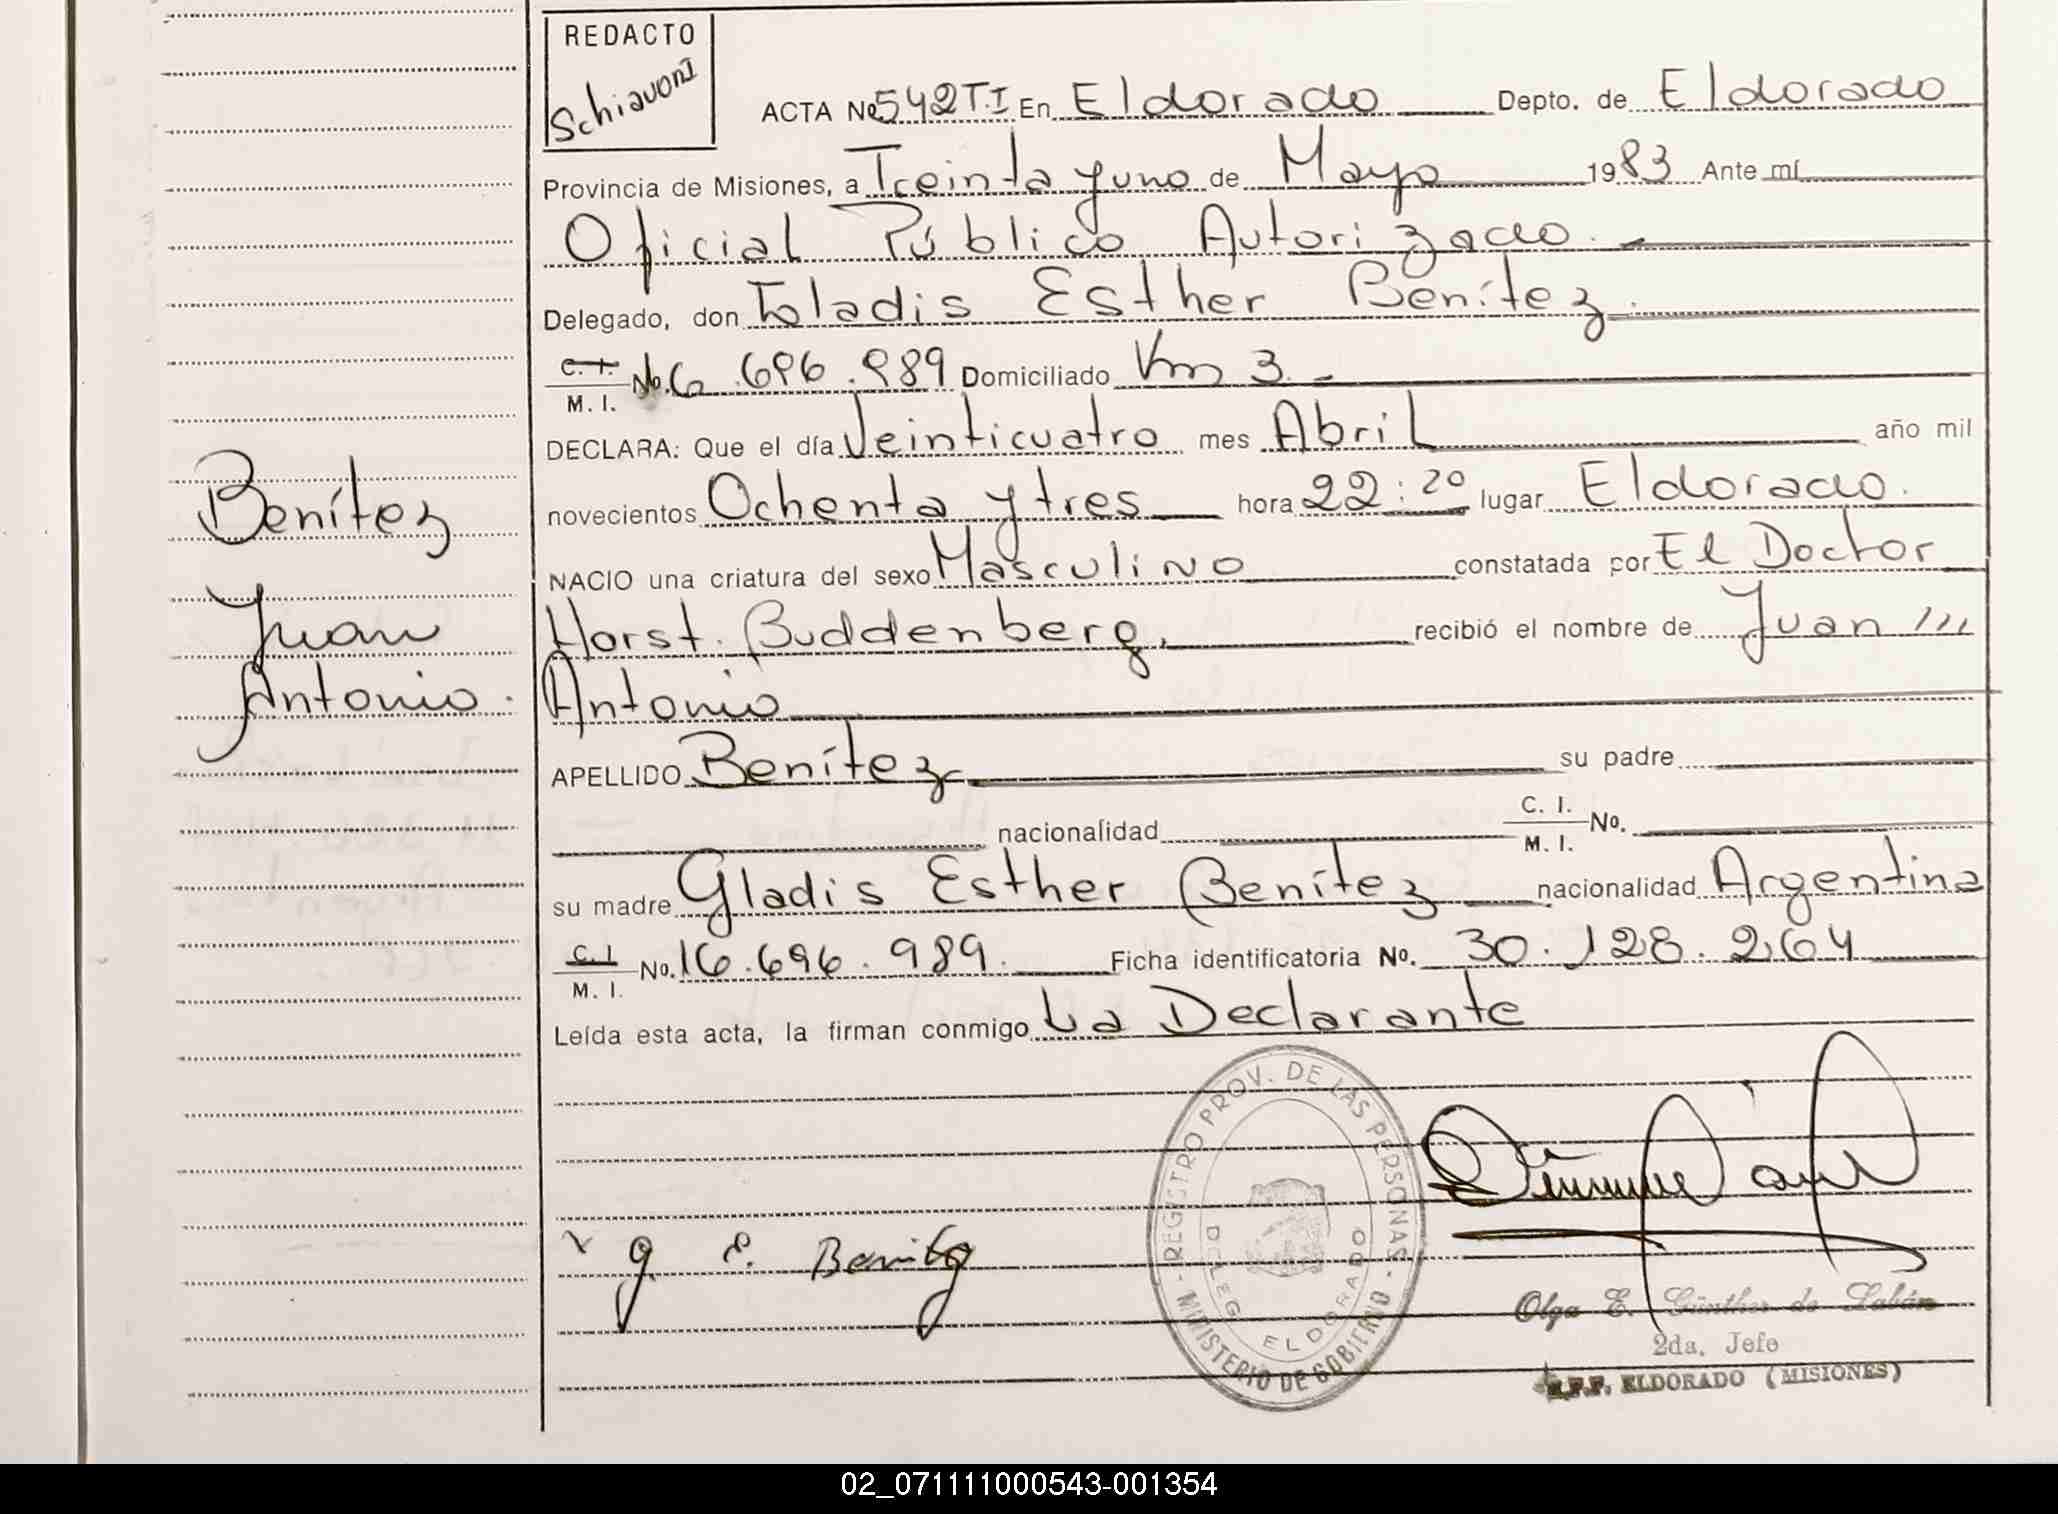 REDACTO
Schiavoni
ACTA No 542 T.I En Eldorado Depto. de Eldorado
Provincia de Misiones, a Treinta y uno de Mayo 1983 Ante mí
Oficial Público Autorizado.
Delegado, don Gladis Esther Benítez.
C. I.
M. I. No. 696.989 Domiciliado Km 3.-
DECLARA: Que el día Veinticuatro mes Abril año mil
novecientos Ochenta y tres hora 22:20 lugar Eldorado.
NACIO una criatura del sexo Masculino constatada por El Doctor
Horst. Buddenberg, recibió el nombre de Juan ///
Antonio
APELLIDO Benítez su padre
nacionalidad C. I. M. I. No.
su madre Gladis Esther Benítez nacionalidad Argentina
C. I. M. I. No. 16.696.989. Ficha identificatoria No. 30.128.264
Leída esta acta, la firman conmigo La Declarante
Benítez
Juan
Antonio.
REGISTRO PROV. DE LAS PERSONAS
DELEG ELDORADO
MINISTERIO DE GOBIERNO
g E. Benitez
Olga E. Günther de Labán
2da. Jefe
ELDORADO (MISIONES)
02_071111000543-001354